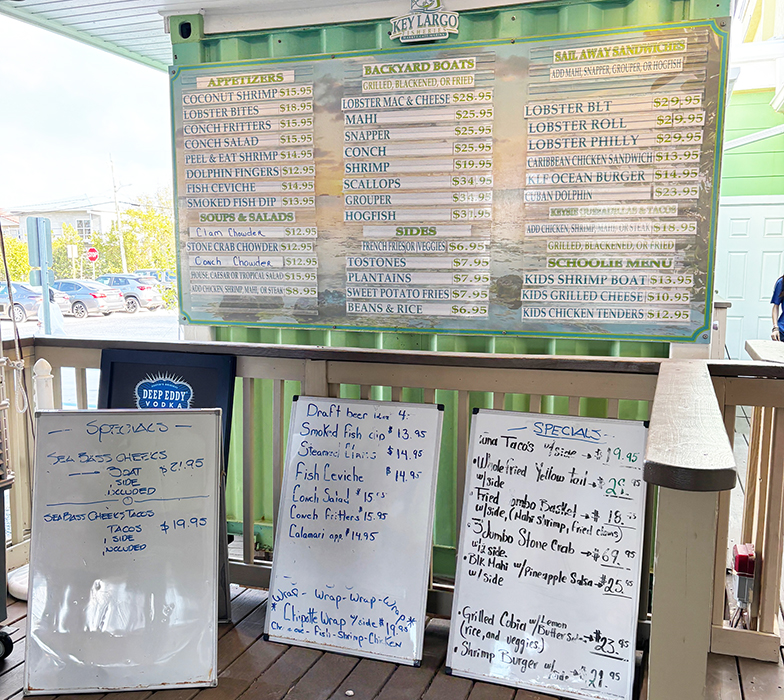 KEY LARGO
FISHERIES
APPETIZERS
COCONUT SHRIMP $15.95
LOBSTER BITES $18.95
CONCH FRITTERS $15.95
CONCH SALAD $15.95
PEEL & EAT SHRIMP $14.95
DOLPHIN FINGERS $12.95
FISH CEVICHE $14.95
SMOKED FISH DIP $13.95
SOUPS & SALADS
Clam Chowder $12.95
STONE CRAB CHOWDER $12.95
Conch Chowder $12.95
HOUSE, CAESAR OR TROPICAL SALAD $15.95
ADD CHICKEN, SHRIMP, MAHI, OR STEAK $8.95
BACKYARD BOATS
GRILLED, BLACKENED, OR FRIED
LOBSTER MAC & CHEESE $28.95
MAHI $25.95
SNAPPER $25.95
CONCH $25.95
SHRIMP $19.95
SCALLOPS $34.95
GROUPER $34.95
HOGFISH $34.95
SIDES
FRENCH FRIES (OR) VEGGIES $6.95
TOSTONES $7.95
PLANTAINS $7.95
SWEET POTATO FRIES $7.95
BEANS & RICE $6.95
SAIL AWAY SANDWICHES
ADD MAHI, SNAPPER, GROUPER, OR HOGFISH
LOBSTER BLT $29.95
LOBSTER ROLL $29.95
LOBSTER PHILLY $29.95
CARIBBEAN CHICKEN SANDWICH $13.95
KLF OCEAN BURGER $14.95
CUBAN DOLPHIN $23.95
KEYSIE QUESADILLAS & TACOS
ADD CHICKEN, SHRIMP, MAHI, OR STEAK $18.95
GRILLED, BLACKENED, OR FRIED
SCHOOLIE MENU
KIDS SHRIMP BOAT $13.95
KIDS GRILLED CHEESE $10.95
KIDS CHICKEN TENDERS $12.95
DEEP EDDY
VODKA
SPECIALS
SEA BASS CHEEKS
BOAT $21.95
1 SIDE
INCLUDED
SEABASS CHEEKS TACOS
TACOS $19.95
1 SIDE
INCLUDED
Draft beer 4-
Smoked Fish dip $13.95
Steamed Clams $14.95
Fish Ceviche $14.95
Conch Salad $15.95
Conch fritters $15.95
Calamari app $14.95
Wrap - Wrap - Wrap - Wrap
* Chipotle Wrap w/side $19.95 *
Fish - Shrimp - Chicken
SPECIALS
Tuna Taco's w/side → $19.95
• Whole fried Yellow tail →
w/side
• Fried Combo Basket → $18.95
w/side, (Mahi, shrimp, fried clams)
• 3 Jumbo Stone Crab → $69.95
w/2 side.
• Blk Mahi w/Pineapple Salsa → $25.95
w/side
• Grilled Cobia w/Lemon
Butter → $23.95
(rice, and veggies)
• Shrimp Burger w/side → $21.95